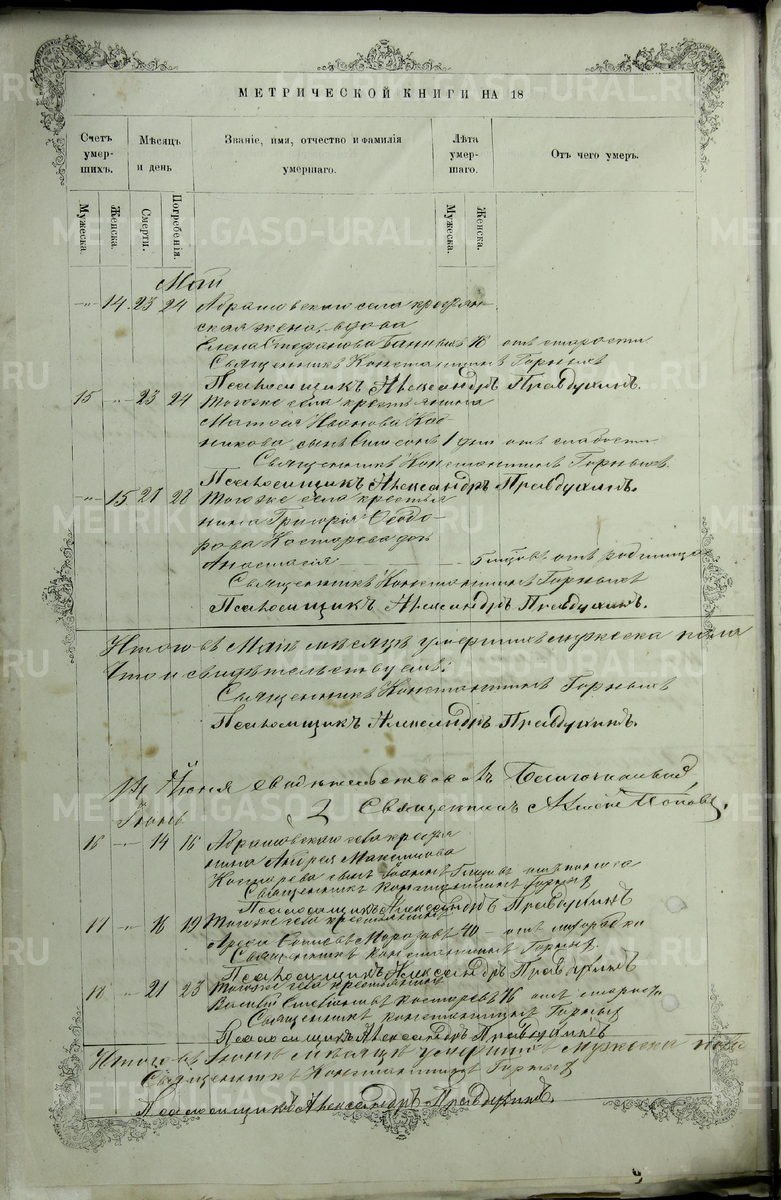 МЕТРИЧЕСКОЙ КНИГИ НА 18
Счетъ умер- шихъ.
Мѣсяцъ и день
Званіе, имя, отчество и фамилія умершаго.
Лѣта умер- шаго.
Отъ чего умеръ.
Мужеска.
Женска.
Смерти.
Погребенія.
Мужеска.
Женска.
Май
14. 23 24 Абрамовскаго села крестьян-
ская жена, вдова
Елена Стефанова 78 отъ старости
Священникъ Константинъ Горныхъ
Псаломщикъ Александръ Правдухинъ.
15 23 24 Тогоже села крестьянина
Матѳія Иванова
сынъ Симеонъ 1 дня отъ слабости
Священникъ Константинъ Горныхъ.
Псаломщикъ Александръ Правдухинъ.
15 28 Тогоже села крестья
нина Григорія Ѳеодо-
рова Костарева дочь
Анастасія отъ родимца
Священникъ Константинъ Горныхъ
Псаломщикъ Александръ Правдухинъ.
Итого въ Маѣ мѣсяцѣ умершихъ мужеска пола
Что и свидѣтельствуемъ:
Священникъ Константинъ Горныхъ
Псаломщикъ Александръ Правдухинъ.
Іюня свидѣтельствовалъ Благочинный,
Священникъ Поповъ.
Іюнь
16 14 16 Абрамовскаго села крестья
нина Андрея Максимова
Костарева сынъ отъ поноса
Священникъ Константинъ Горныхъ
Псаломщикъ Александръ Правдухинъ
17 18 19 Тогоже села крестьянинъ
Морозовъ 40 отъ лихорадки
Священникъ Константинъ Горныхъ.
Псаломщикъ Александръ Правдухинъ
18 21 23 Тогоже села крестьянинъ
Василій Костаревъ 76 отъ старости
Священникъ Константинъ Горныхъ
Псаломщикъ Александръ Правдухинъ
Итого въ Іюнѣ мѣсяцѣ умершихъ мужеска пола
Священникъ Константинъ Горныхъ
Псаломщикъ Александръ Правдухинъ.
METRIKI.GASO-URAL.RU